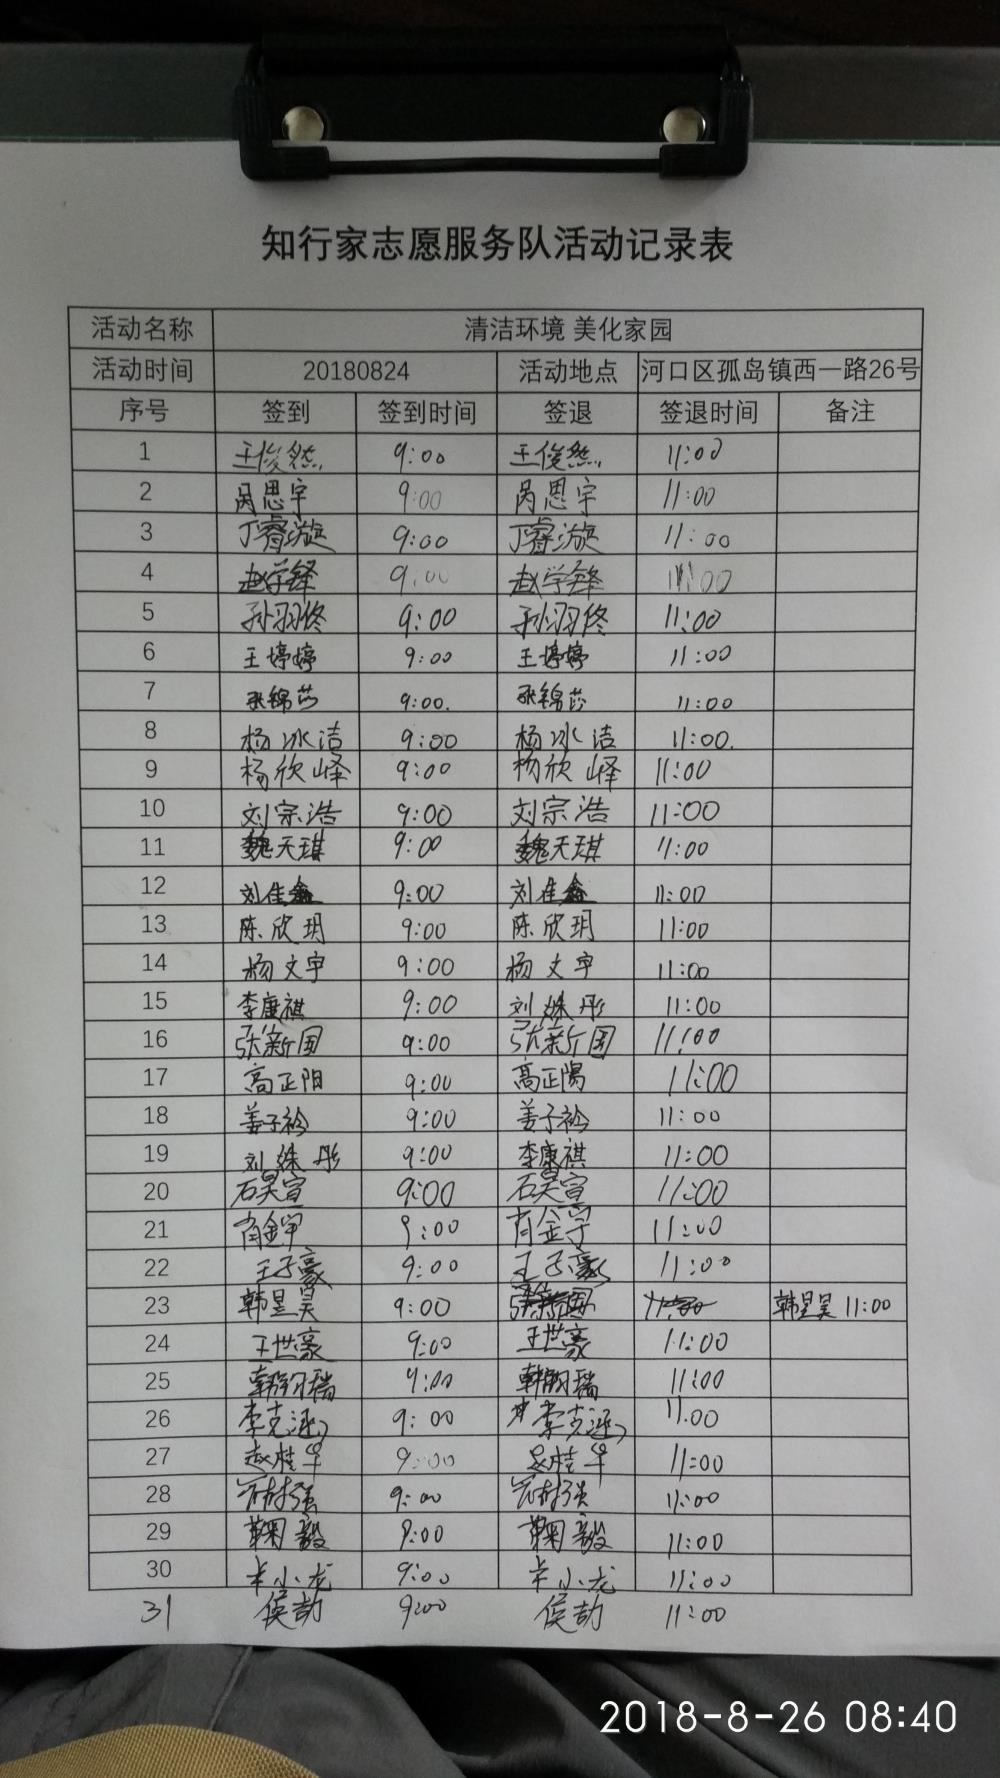 知行家志愿服务队活动记录表
活动名称 清洁环境 美化家园
活动时间 20180824 活动地点 河口区孤岛镇西一路26号
序号 签到 签到时间 签退 签退时间 备注
1 王俊然 9:00 王俊然 11:00
2 呙思宇 9:00 呙思宇 11:00
3 丁睿漩 9:00 丁睿漩 11:00
4 赵学锋 9:00 赵学锋 11:00
5 孙羽佟 9:00 孙羽佟 11:00
6 王婷婷 9:00 王婷婷 11:00
7 张锦莎 9:00. 张锦莎 11:00
8 杨冰洁 9:00 杨冰洁 11:00.
9 杨欣峄 9:00 杨欣峄 11:00
10 刘宗浩 9:00 刘宗浩 11:00
11 魏天琪 9:00 魏天琪 11:00
12 刘佳鑫 9:00 刘佳鑫 11:00
13 陈欣玥 9:00 陈欣玥 11:00
14 杨文宇 9:00 杨文宇 11:00
15 李康祺 9:00 刘姝彤 11:00
16 张新国 9:00 张新国 11:00
17 高正阳 9:00 高正陽 11:00
18 姜子衿 9:00 姜子衿 11:00
19 刘姝彤 9:00 李康祺 11:00
20 石昊宣 9:00 石昊宣 11:00
21 肖金罕 9:00 肖金罕 11:00
22 王子豪 9:00 王子豪 11:00
23 韩昱昊 9:00 11:00 韩昱昊 11:00
24 王世豪 9:00 王世豪 11:00
25 韩翔瑞 9:00 韩翔瑞 11:00
26 李克涵 9:00 李克涵 11:00
27 赵桂华 9:00 赵桂华 11:00
28 9:00 11:00
29 鞠毅 9:00 鞠毅 11:00
30 小龙 9:00 小龙 11:00
31 侯劼 9:00 侯劼 11:00
2018-8-26 08:40